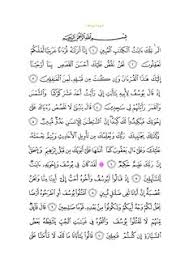 بِسْمِ اللَّهِ الرَّحْمَٰنِ الرَّحِيمِ
الٓر تِلْكَ ءَايَٰتُ الْكِتَٰبِ الْمُبِينِ ١ إِنَّآ أَنزَلْنَٰهُ قُرْءَٰنًا عَرَبِيًّا لَّعَلَّكُمْ
تَعْقِلُونَ ٢ نَحْنُ نَقُصُّ عَلَيْكَ أَحْسَنَ الْقَصَصِ بِمَآ أَوْحَيْنَآ
إِلَيْكَ هَٰذَا الْقُرْءَانَ وَإِن كُنتَ مِن قَبْلِهِ لَمِنَ الْغَٰفِلِينَ ٣
إِذْ قَالَ يُوسُفُ لِأَبِيهِ يَٰٓأَبَتِ إِنِّي رَأَيْتُ أَحَدَ عَشَرَ كَوْكَبًا وَالشَّمْسَ
وَالْقَمَرَ رَأَيْتُهُمْ لِي سَٰجِدِينَ ٤ قَالَ يَٰبُنَيَّ لَا تَقْصُصْ رُءْيَاكَ عَلَىٰٓ
إِخْوَتِكَ فَيَكِيدُوا لَكَ كَيْدًا إِنَّ الشَّيْطَٰنَ لِلْإِنسَٰنِ عَدُوٌّ مُّبِينٌ ٥
وَكَذَٰلِكَ يَجْتَبِيكَ رَبُّكَ وَيُعَلِّمُكَ مِن تَأْوِيلِ الْأَحَادِيثِ وَيُتِمُّ نِعْمَتَهُ
عَلَيْكَ وَعَلَىٰٓ ءَالِ يَعْقُوبَ كَمَآ أَتَمَّهَا عَلَىٰٓ أَبَوَيْكَ مِن قَبْلُ إِبْرَٰهِيمَ وَإِسْحَٰقَ
إِنَّ رَبَّكَ عَلِيمٌ حَكِيمٌ ٦ لَّقَدْ كَانَ فِي يُوسُفَ وَإِخْوَتِهِ ءَايَٰتٌ
لِّلسَّآئِلِينَ ٧ إِذْ قَالُوا لَيُوسُفُ وَأَخُوهُ أَحَبُّ إِلَىٰٓ أَبِينَا مِنَّا وَنَحْنُ
عُصْبَةٌ إِنَّ أَبَانَا لَفِي ضَلَٰلٍ مُّبِينٍ ٨ اقْتُلُوا يُوسُفَ أَوِ اطْرَحُوهُ أَرْضًا
يَخْلُ لَكُمْ وَجْهُ أَبِيكُمْ وَتَكُونُوا مِن بَعْدِهِ قَوْمًا صَٰلِحِينَ ٩ قَالَ قَآئِلٌ
مِّنْهُمْ لَا تَقْتُلُوا يُوسُفَ وَأَلْقُوهُ فِي غَيَٰبَتِ الْجُبِّ يَلْتَقِطْهُ بَعْضُ
السَّيَّارَةِ إِن كُنتُمْ فَٰعِلِينَ ١٠ قَالُوا يَٰٓأَبَانَا مَا لَكَ لَا تَأْمَنَّا عَلَىٰ